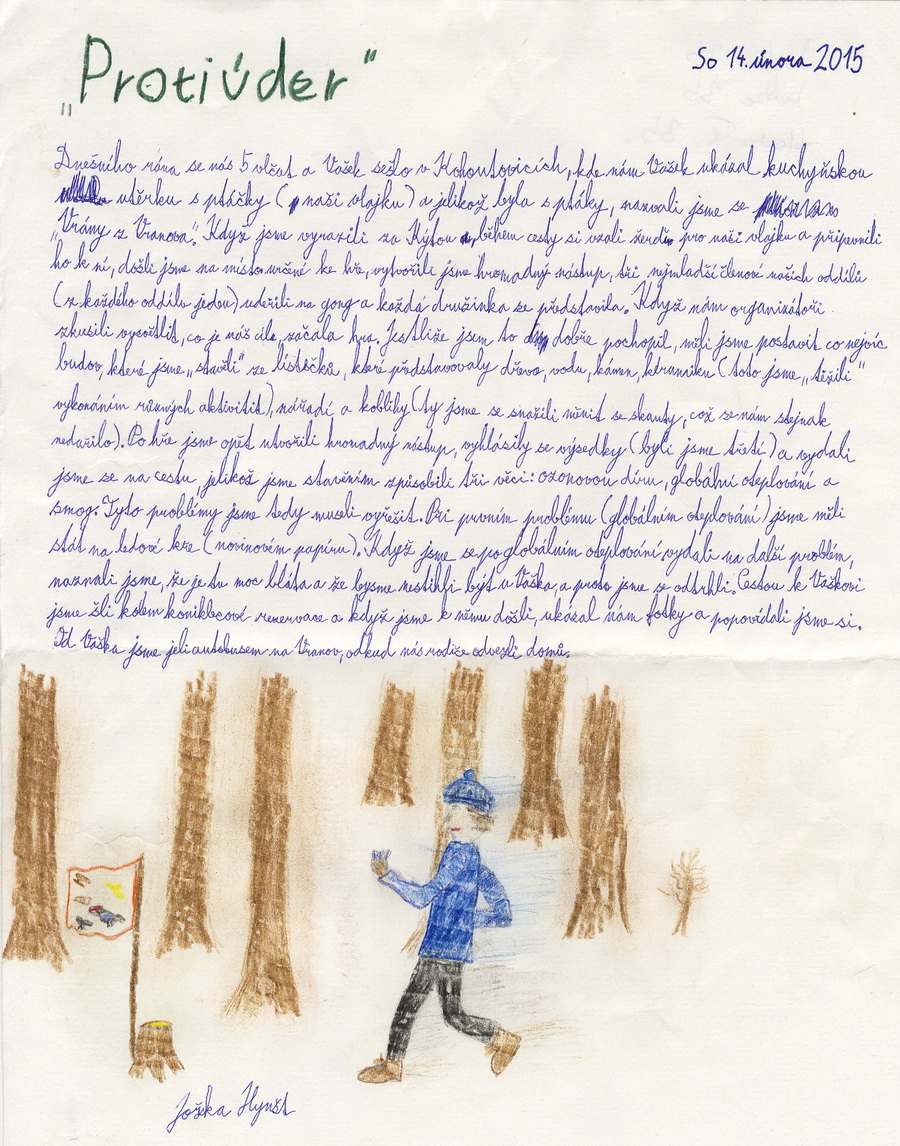 „Protiúder“
So 14. února 2015
Dnešního rána se nás 5 vlčat a Vašek sešlo v Kohoutovicích, kde nám Vašek ukázal kuchyňskou
utěrku s ptáčky (naši vlajku) a jelikož byla s ptáky, nazvali jsme se
„Vrány z Vranova“. Když jsme vyrazili za Kýtou, během cesty si vzali žerdin pro naši vlajku a připevnili
ho k ní, došli jsme na místo určené ke hře, vytvořili jsme hromadný nástup, tři nejmladší členové našich oddílů
(z každého oddílu jeden) udeřili na gong a každá družinka se představila. Když nám organizátoři
zkusili vysvětlit, co je náš cíl, začala hra. Jestliže jsem to dobře pochopil, měli jsme postavit co nejvíc
budov, které jsme „stavěli“ ze lístečků, které představovaly dřevo, vodu, kámen, keramiku (toto jsme „těžili“
vykonáním různých aktivitit), nářadí a koblihy (ty jsme se snažili měnit se skauty, což se nám stejnak
nedařilo). Po hře jsme opět utvořili hromadný nástup, vyhlásily se výsedky (byli jsme třetí) a vydali
jsme se na cestu, jelikož jsme stavěním způsobili tři věci: ozonovou díru, globální oteplování a
smog. Tyto problémy jsme tedy museli vyřešit. Při prvním problému (globálním oteplování) jsme měli
stát na ledové kře (novinovém papíru). Když jsme se po globálním oteplování vydali na další problém,
uznali jsme, že je tu moc bláta a že bysme nestihli být u Vaška, a proto jsme se odtrhli. Cestou k Vaškovi
jsme šli kolem koniklecové rezervace a když jsme k němu došli, ukázal nám fotky a popovídali jsme si.
Od Vaška jsme jeli autobusem na Vranov, odkud nás rodiče odvezli domů.
Joška Hynšt